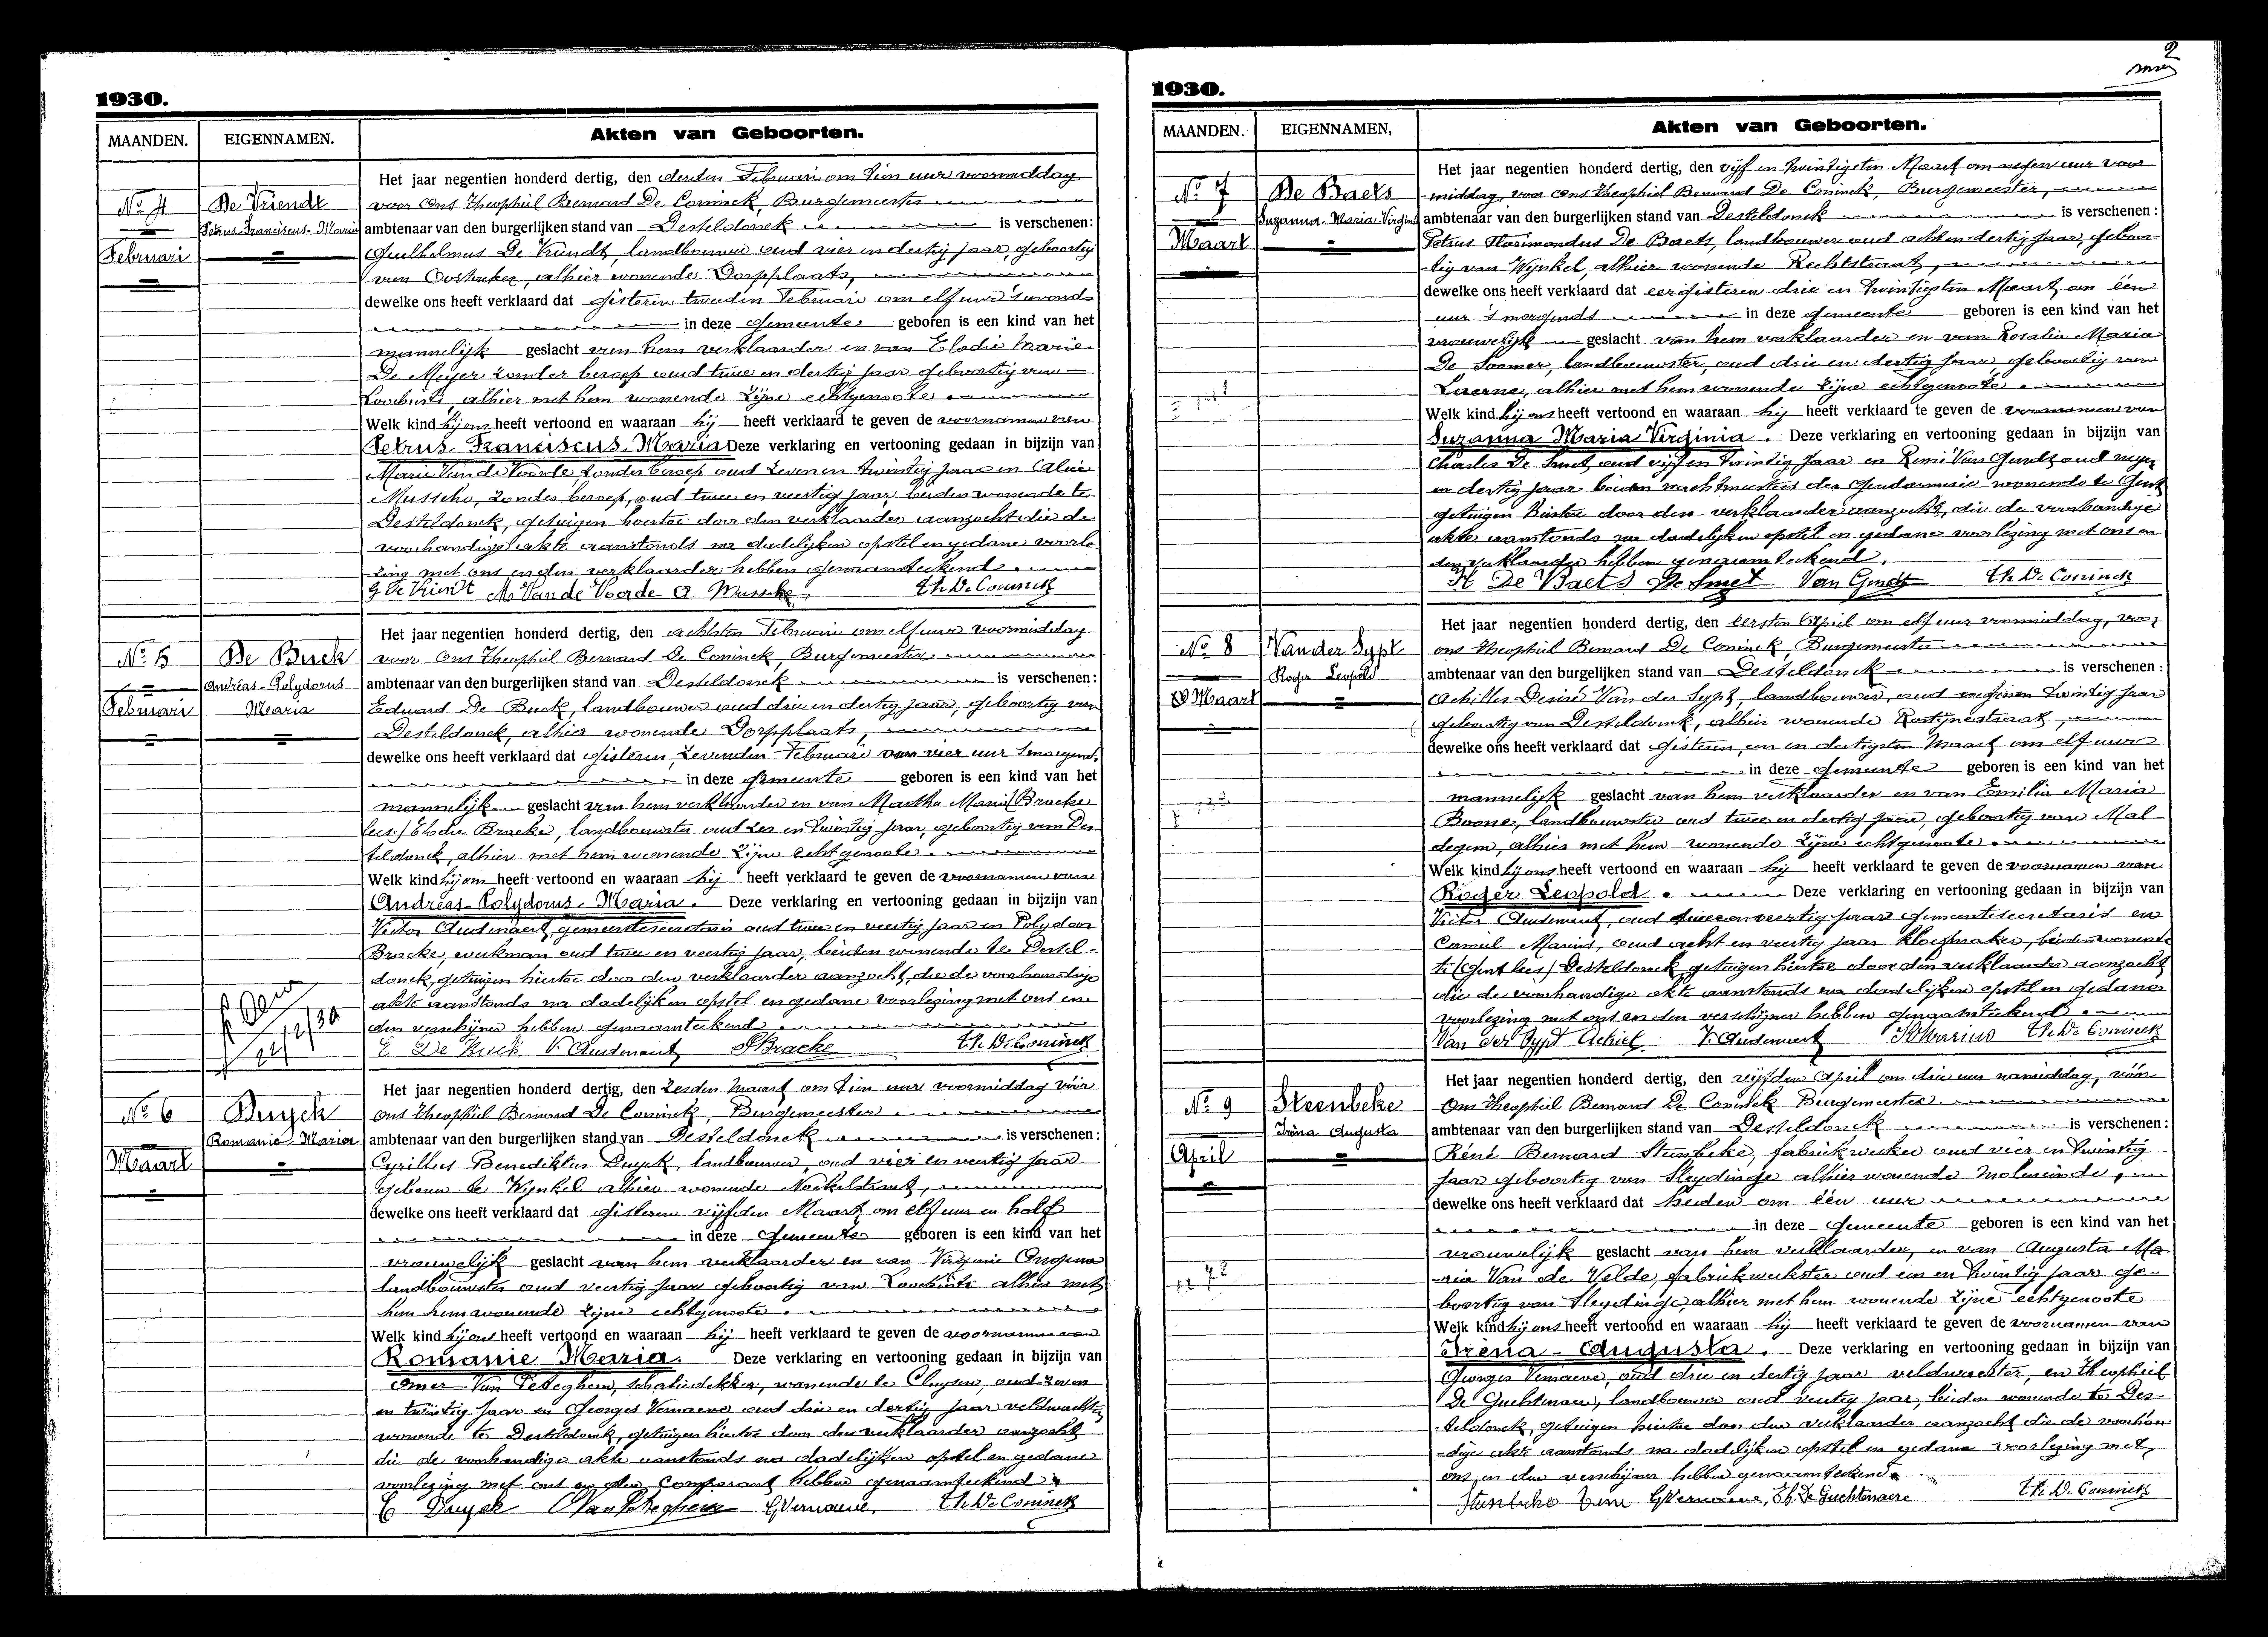 1930.
MAANDEN. EIGENNAMEN. Akten van Geboorten.
No 4
Februari
De Vriendt
Petrus-Franciscus-Maria
Het jaar negentien honderd dertig, den derden Februari om tien uur voormiddag
voor Ons Theophiel Bernard De Coninck, Burgemeester
ambtenaar van den burgerlijken stand van Desteldonck is verschenen:
Guilhelmus De Vriendt, landbouwer oud vier en dertig jaar, geboortig
van Oostacker, alhier wonende Dorpplaats,
dewelke ons heeft verklaard dat gisteren tweeden Februari om elf uur 's avonds
in deze gemeente geboren is een kind van het
mannelijk geslacht van hem verklaarder en van Elodie Marie
De Meyer zonder beroep oud twee en dertig jaar geboortig van
Loochristi alhier met hem wonende zijne echtgenoote.
Welk kind hij ons heeft vertoond en waaraan hij heeft verklaard te geven de voornamen van
Petrus-Franciscus-Maria Deze verklaring en vertooning gedaan in bijzijn van
Marie Van de Voorde, zonder beroep oud zeven en twintig jaar en Alice
Mussche, zonder beroep, oud twee en veertig jaar, beiden wonende te
Desteldonck, getuigen hiertoe door den verklaarder aanzocht die de
voorhandige akte aanstonds na dadelijken opstel en gedane voorle-
zing met ons en den verklaarder hebben genaamteekend.
G De Vriendt M Van de Voorde A Mussche Th. De Coninck
No 5
Februari
De Buck
Andréas-Polydorus
Maria
Het jaar negentien honderd dertig, den achtsten Februari om elf uur voormiddag
voor Ons Theophiel Bernard De Coninck, Burgemeester
ambtenaar van den burgerlijken stand van Desteldonck is verschenen:
Eduard De Buck, landbouwer oud drie en dertig jaar, geboortig van
Desteldonck, alhier wonende Dorpplaats,
dewelke ons heeft verklaard dat gisteren, zevenden Februari om vier uur 's morgends,
in deze gemeente geboren is een kind van het
mannelijk geslacht van hem verklaarder en van Martha Maria (Bracke
lees:) Elodie Bracke, landbouwster oud zes en twintig jaar, geboortig van Des-
teldonck, alhier met hem wonende zijne echtgenoote.
Welk kind hij ons heeft vertoond en waaraan hij heeft verklaard te geven de voornamen van
Andréas-Polydorus-Maria. Deze verklaring en vertooning gedaan in bijzijn van
Victor Audenaert, gemeentesecretaris oud twee en veertig jaar en Polydoor
Bracke, werkman oud twee en veertig jaar, beiden wonende te Destel-
donck, getuigen hiertoe door den verklaarder aanzocht, die de voorhandige
akte aanstonds na dadelijken opstel en gedane voorlezing met ons en
den verschijner hebben genaamteekend.
E De Buck V. Audenaert P Bracke Th. De Coninck
No 6
Maart
Duyck
Romanie-Maria
Het jaar negentien honderd dertig, den zesden Maart om tien uur voormiddag vóór
ons Theophiel Bernard De Coninck, Burgemeester
ambtenaar van den burgerlijken stand van Desteldonck is verschenen:
Cyrillus Benediktus Duyck, landbouwer, oud vier en veertig jaar
geboren te Wynkel alhier wonende Nockelstraat,
dewelke ons heeft verklaard dat gisteren vijfden Maart om elf uur en half
in deze gemeente geboren is een kind van het
vrouwelijk geslacht van hem verklaarder en van Virginie Ongena
landbouwster oud veertig jaar geboortig van Loochristi alhier met
hem hem wonende zijne echtgenoote.
Welk kind hij ons heeft vertoond en waaraan hij heeft verklaard te geven de voornamen van
Romanie Maria. Deze verklaring en vertooning gedaan in bijzijn van
Omer Van Peteghem, schaliedekker, wonende te Cluysen, oud zeven
en twintig jaar en Georges Vernaeve oud drie en dertig jaar veldwachter,
wonende te Desteldonck, getuigen hiertoe door den verklaarder aanzocht
die de voorhandige akte aanstonds na dadelijken opstel en gedane
voorlezing met ons en den comparant hebben genaamteekend.
C Duyck O Van Peteghem G Vernaeve, Th. De Coninck
2
1930.
MAANDEN. EIGENNAMEN, Akten van Geboorten.
No 7
Maart
De Baets
Suzanna-Maria-Virginia
Het jaar negentien honderd dertig, den vijf en twintigsten Maart om negen uur voor
middag, voor Ons Theophiel Bernard De Coninck, Burgemeester,
ambtenaar van den burgerlijken stand van Desteldonck is verschenen:
Petrus Florimondus De Baets, landbouwer oud acht en dertig jaar, geboor-
tig van Wynkel, alhier wonende Rechtstraat,
dewelke ons heeft verklaard dat eergisteren drie en twintigsten Maart om één
uur 's morgends in deze gemeente geboren is een kind van het
vrouwelijk geslacht van hem verklaarder en van Rosalia Maria
De Soomer, landbouwster, oud drie en dertig jaar, geboortig van
Laerne, alhier met hem wonende zijne echtgenoote.
Welk kind hij ons heeft vertoond en waaraan hij heeft verklaard te geven de voornamen van
Suzanna Maria Virginia. Deze verklaring en vertooning gedaan in bijzijn van
Charles De Smet, oud vijf en twintig jaar en René Van Gendt, oud negen
en dertig jaar beiden wachtmeesters der Gendarmerie wonende te Gent
getuigen hiertoe door den verklaarder aanzocht, die de voorhandige
akte aanstonds na dadelijken opstel en gedane voorlezing met ons en
den verklaarder hebben genaamteekend.
De Baets De Smet Van Gendt Th. De Coninck
No 8
Maart
Vander Sypt
Roger Leopold
Het jaar negentien honderd dertig, den eersten April om elf uur voormiddag, voor
ons Theophiel Bernard De Coninck, Burgemeester
ambtenaar van den burgerlijken stand van Desteldonck is verschenen:
Achilles Desiré Van der Sypt, landbouwer, oud negen en twintig jaar
geboortig van Desteldonck, alhier wonende Rostijnestraat,
dewelke ons heeft verklaard dat gisteren, een en dertigsten Maart om elf uur
in deze gemeente geboren is een kind van het
mannelijk geslacht van hem verklaarder en van Emilia Maria
Boone, landbouwster oud twee en dertig jaar, geboortig van Mal-
degem, alhier met hem wonende zijne echtgenoote.
Welk kind hij ons heeft vertoond en waaraan hij heeft verklaard te geven de voornamen van
Roger Leopold. Deze verklaring en vertooning gedaan in bijzijn van
Victor Audenaert, oud twee en veertig jaar gemeentesecretaris en
Camiel Marius, oud acht en veertig jaar kloefmaker, beiden wonende
te (Gent lees) Desteldonck getuigen hiertoe door den verklaarder aanzocht
die de voorhandige akte aanstonds na dadelijken opstel en gedane
voorlezing met ons en den verschijner hebben genaamteekend.
Van der Sypt Achiel V. Audenaert Marius Th. De Coninck
No 9
April
Steenbeke
Iréna Augusta
Het jaar negentien honderd dertig, den vijfden April om drie uur namiddag, vóór
Ons Theophiel Bernard De Coninck Burgemeester
ambtenaar van den burgerlijken stand van Desteldonck is verschenen:
Réné Bernard Steenbeke, fabriekwerker oud vier en twintig
jaar geboortig van Sleydinge alhier wonende Moleneinde,
dewelke ons heeft verklaard dat heden om één uur
in deze gemeente geboren is een kind van het
vrouwelijk geslacht van hem verklaarder, en van Augusta Ma-
ria Van de Velde, fabriekwerkster oud een en twintig jaar ge-
boortig van Sleydinge, alhier met hem wonende zijne echtgenoote
Welk kind hij ons heeft vertoond en waaraan hij heeft verklaard te geven de voornamen van
Iréna-Augusta. Deze verklaring en vertooning gedaan in bijzijn van
Georges Vernaeve, oud drie en dertig jaar veldwachter, en Theophiel
De Guchtenaere, landbouwer oud veertig jaar, beiden wonende te Des-
teldonck, getuigen hiertoe door den verklaarder aanzocht die de voorhan-
dige akte aanstonds na dadelijken opstel en gedane voorlezing met
ons en den verschijner hebben genaamteekend.
Steenbeke G Vernaeve, Th. De Guchtenaere Th. De Coninck